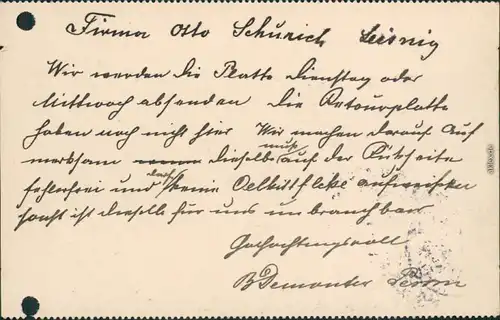 Firma Otto Schurich Leisnig
Wir werden die Platte Dienstag oder
Mittwoch absenden die Retourplatte
haben noch nicht hier Wir machen darauf auf
merksam dieselbe muß auf der Rückseite
fehlerfrei und darf keine aufweisen
sonst ist dieselbe für uns unbrauchbar
Hochachtungsvoll